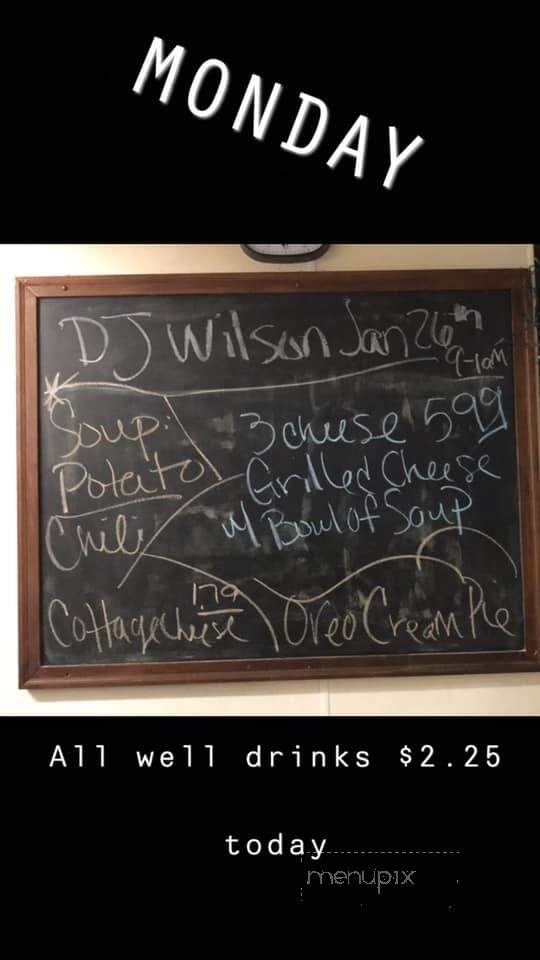 MONDAY
DJ Wilson Jan 26th
9-1am
Soup:
Potato
Chili
3 cheese 5 99
Grilled Cheese
w/ Bowl of Soup
1.79
Cottage Cheese
Oreo Cream Pie
All well drinks $2.25
today
menupix